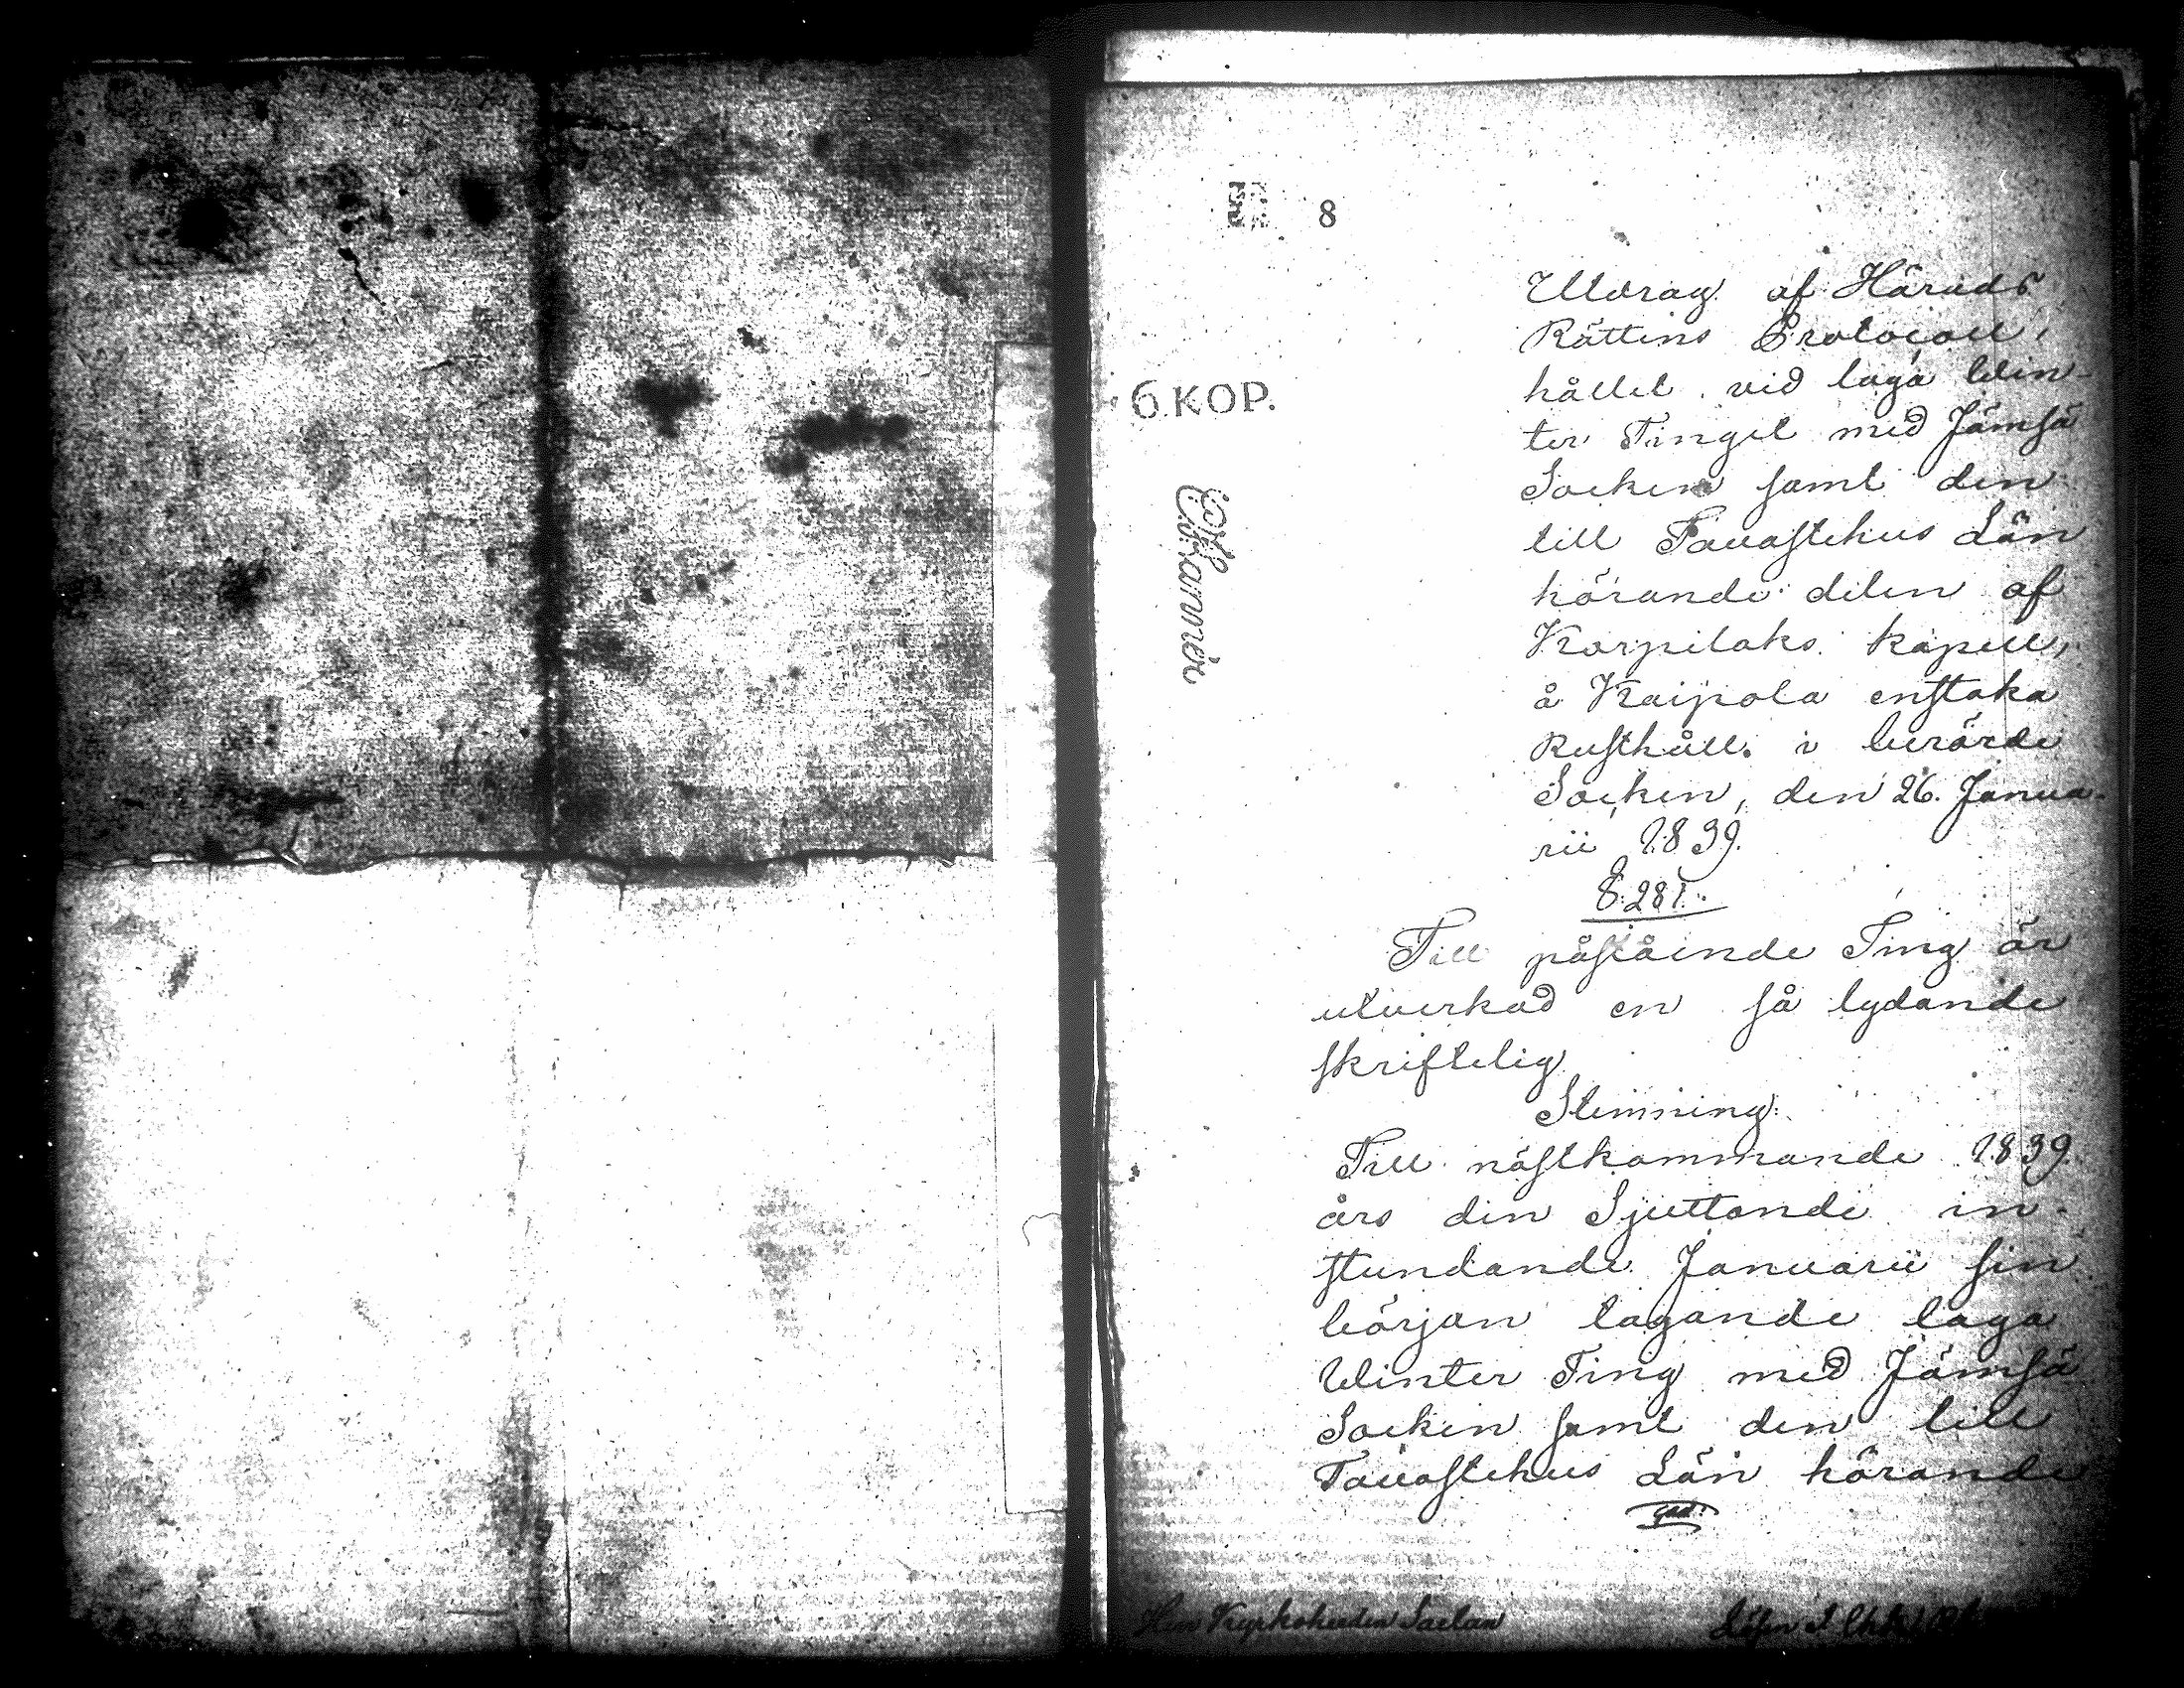 8
6.KOP.
Utdrag af Härads
Rättens Protocoll,
hållet vid laga Win-
ter Tinget med Jämsä
Socken samt den
till Tavastehus Län
hörande delen af
Korpilaks kapell,
å Kaipola enstaka
Rusthåll i berörde
Socken, den 26. Janua-
rii 1839.
§. 281.
Till påstående Ting är
utverkad en så lydande
skriftelig
Stemning:
Till nästkommande 1839
års den Sjuttonde in-
stundande Januarii sin
början tagande laga
Winter Ting med Jämsä
Socken samt den till
Tavastehus Län hörande
Herr Kyrkoherden Saelan
Lösen